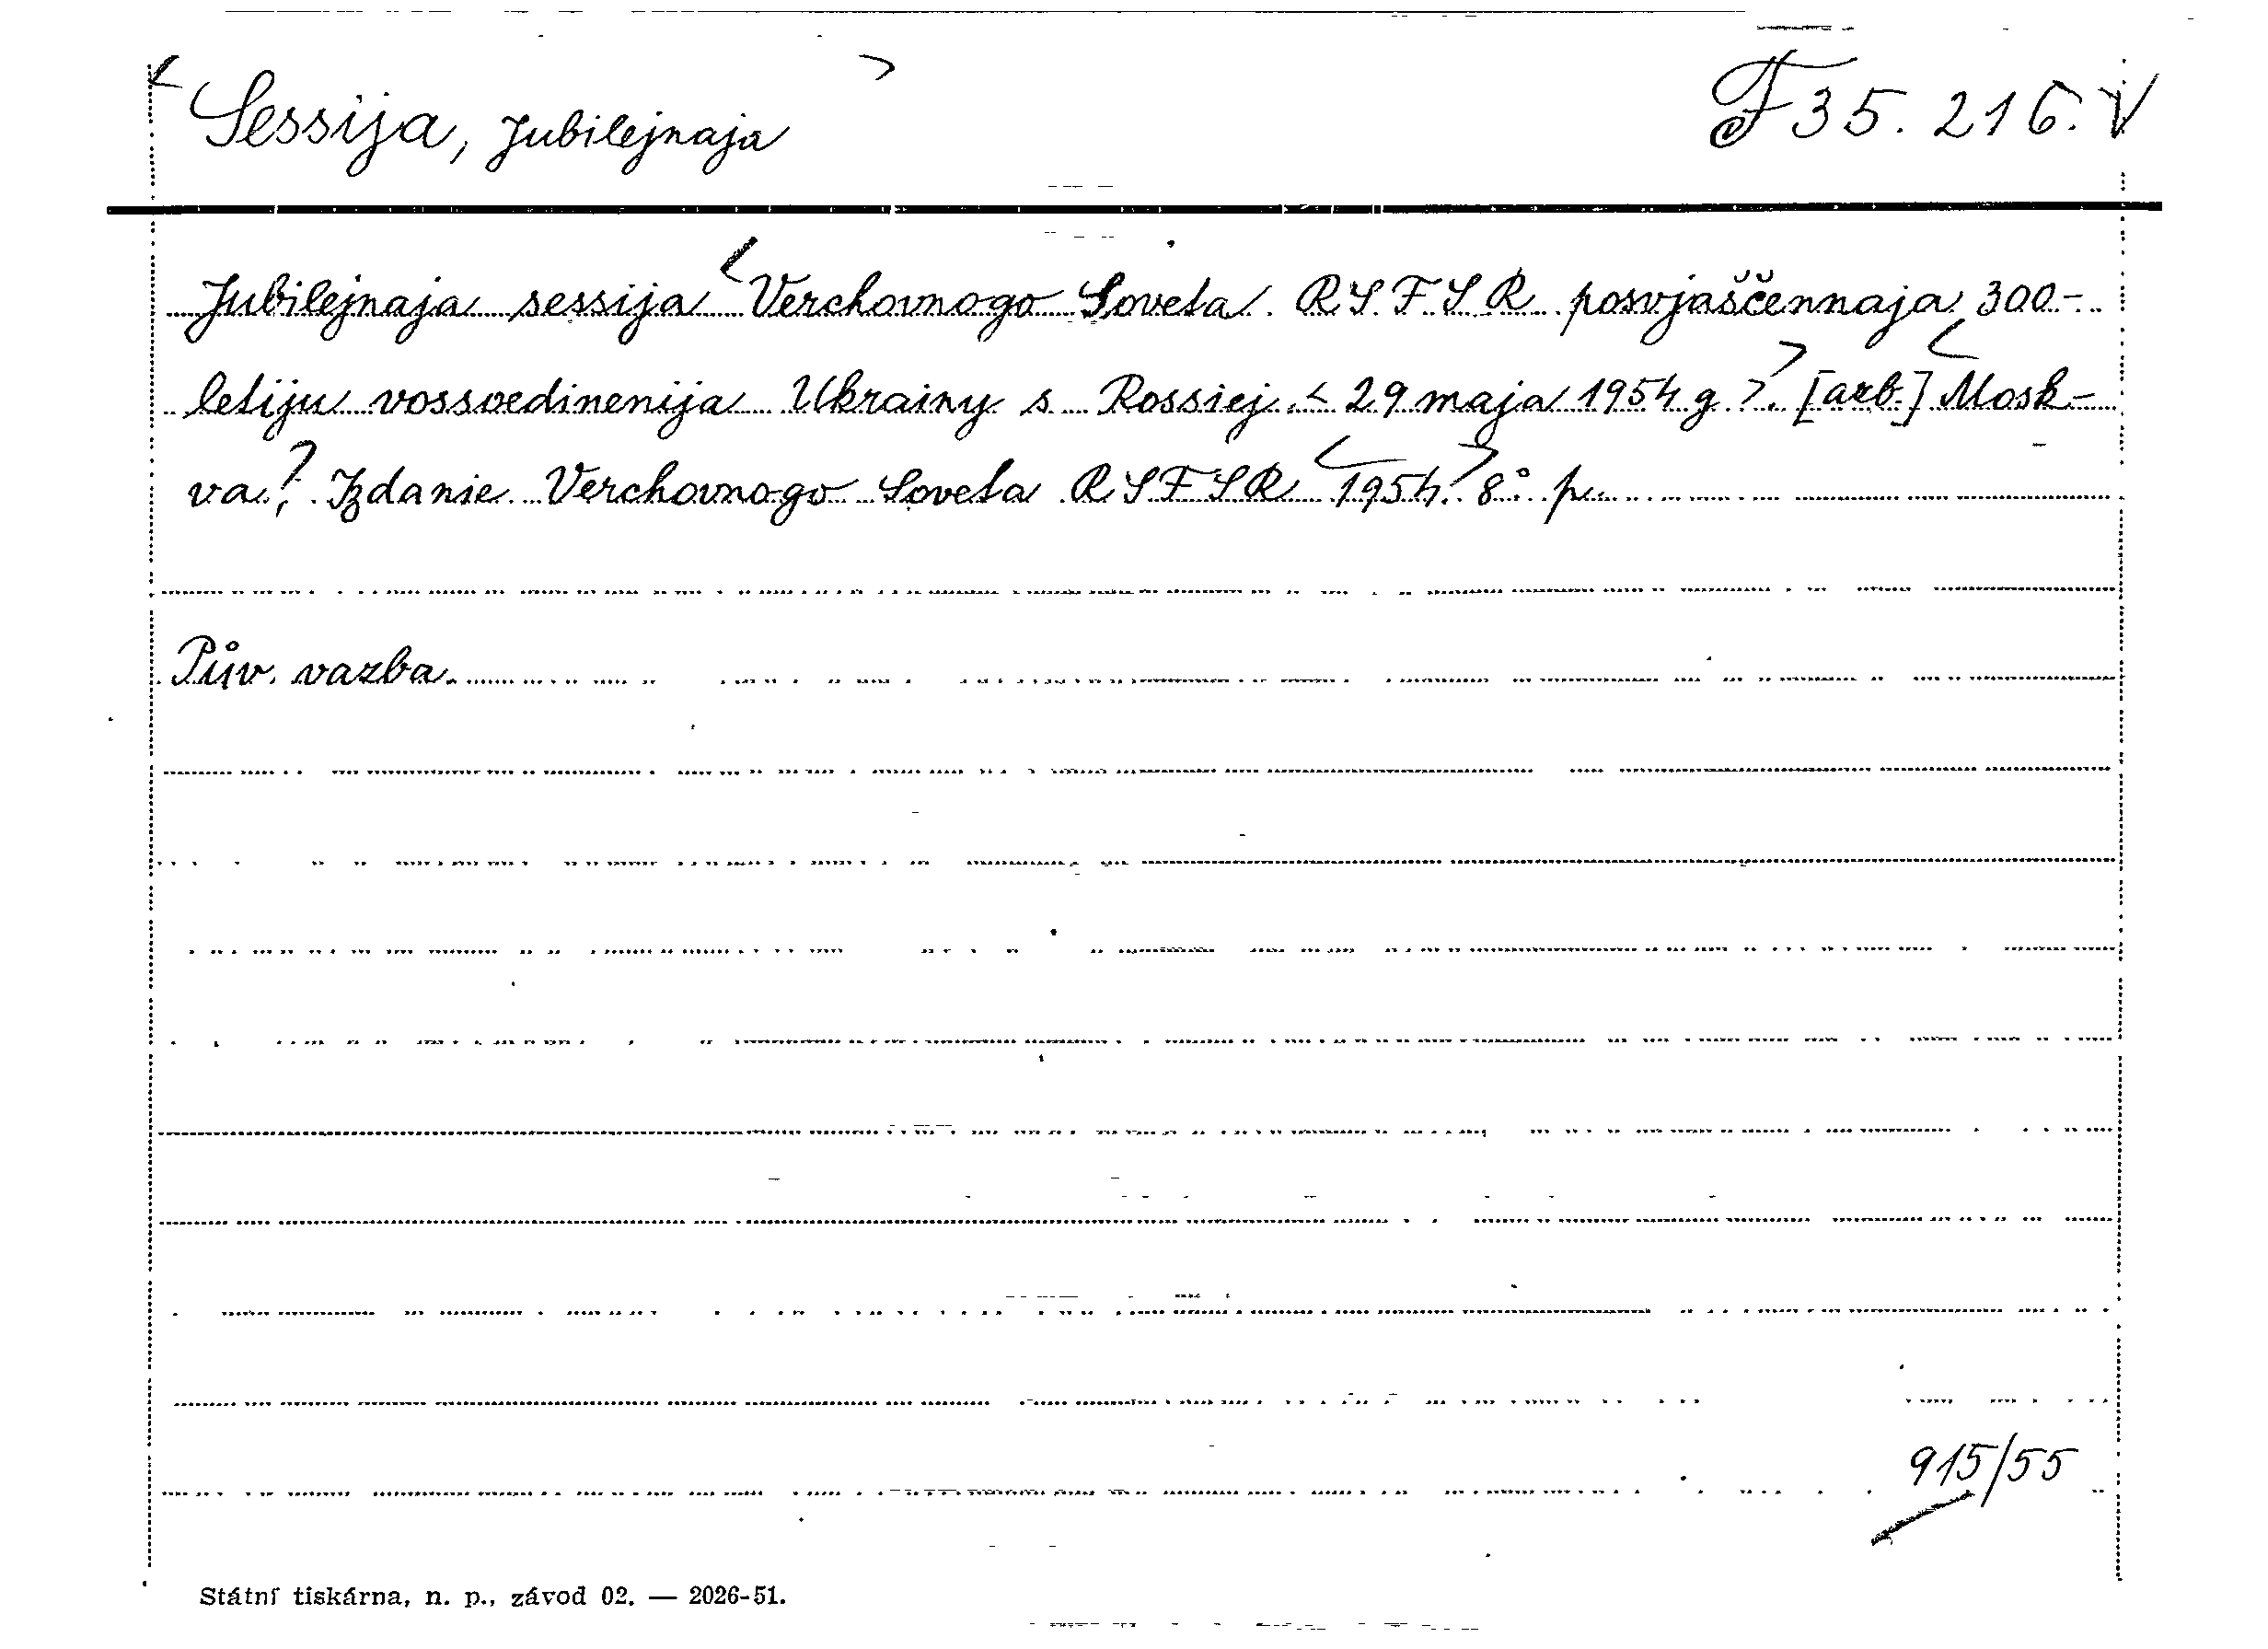 < Sessija, Jubilejnaja > F 35.216. V
Jubilejnaja sessija < Verchovnogo Soveta RSFSR posvjaščennaja 300-
letiju vossoedinenija Ukrainy s Rossiej < 29 maja 1954 g >. > [azb.] < Mosk-
va >. Izdanie Verchovnogo Soveta RSFSR < 1954. > 8° p.
Pův. vazba.
915/55
Státní tiskárna, n. p., závod 02. — 2026-51.